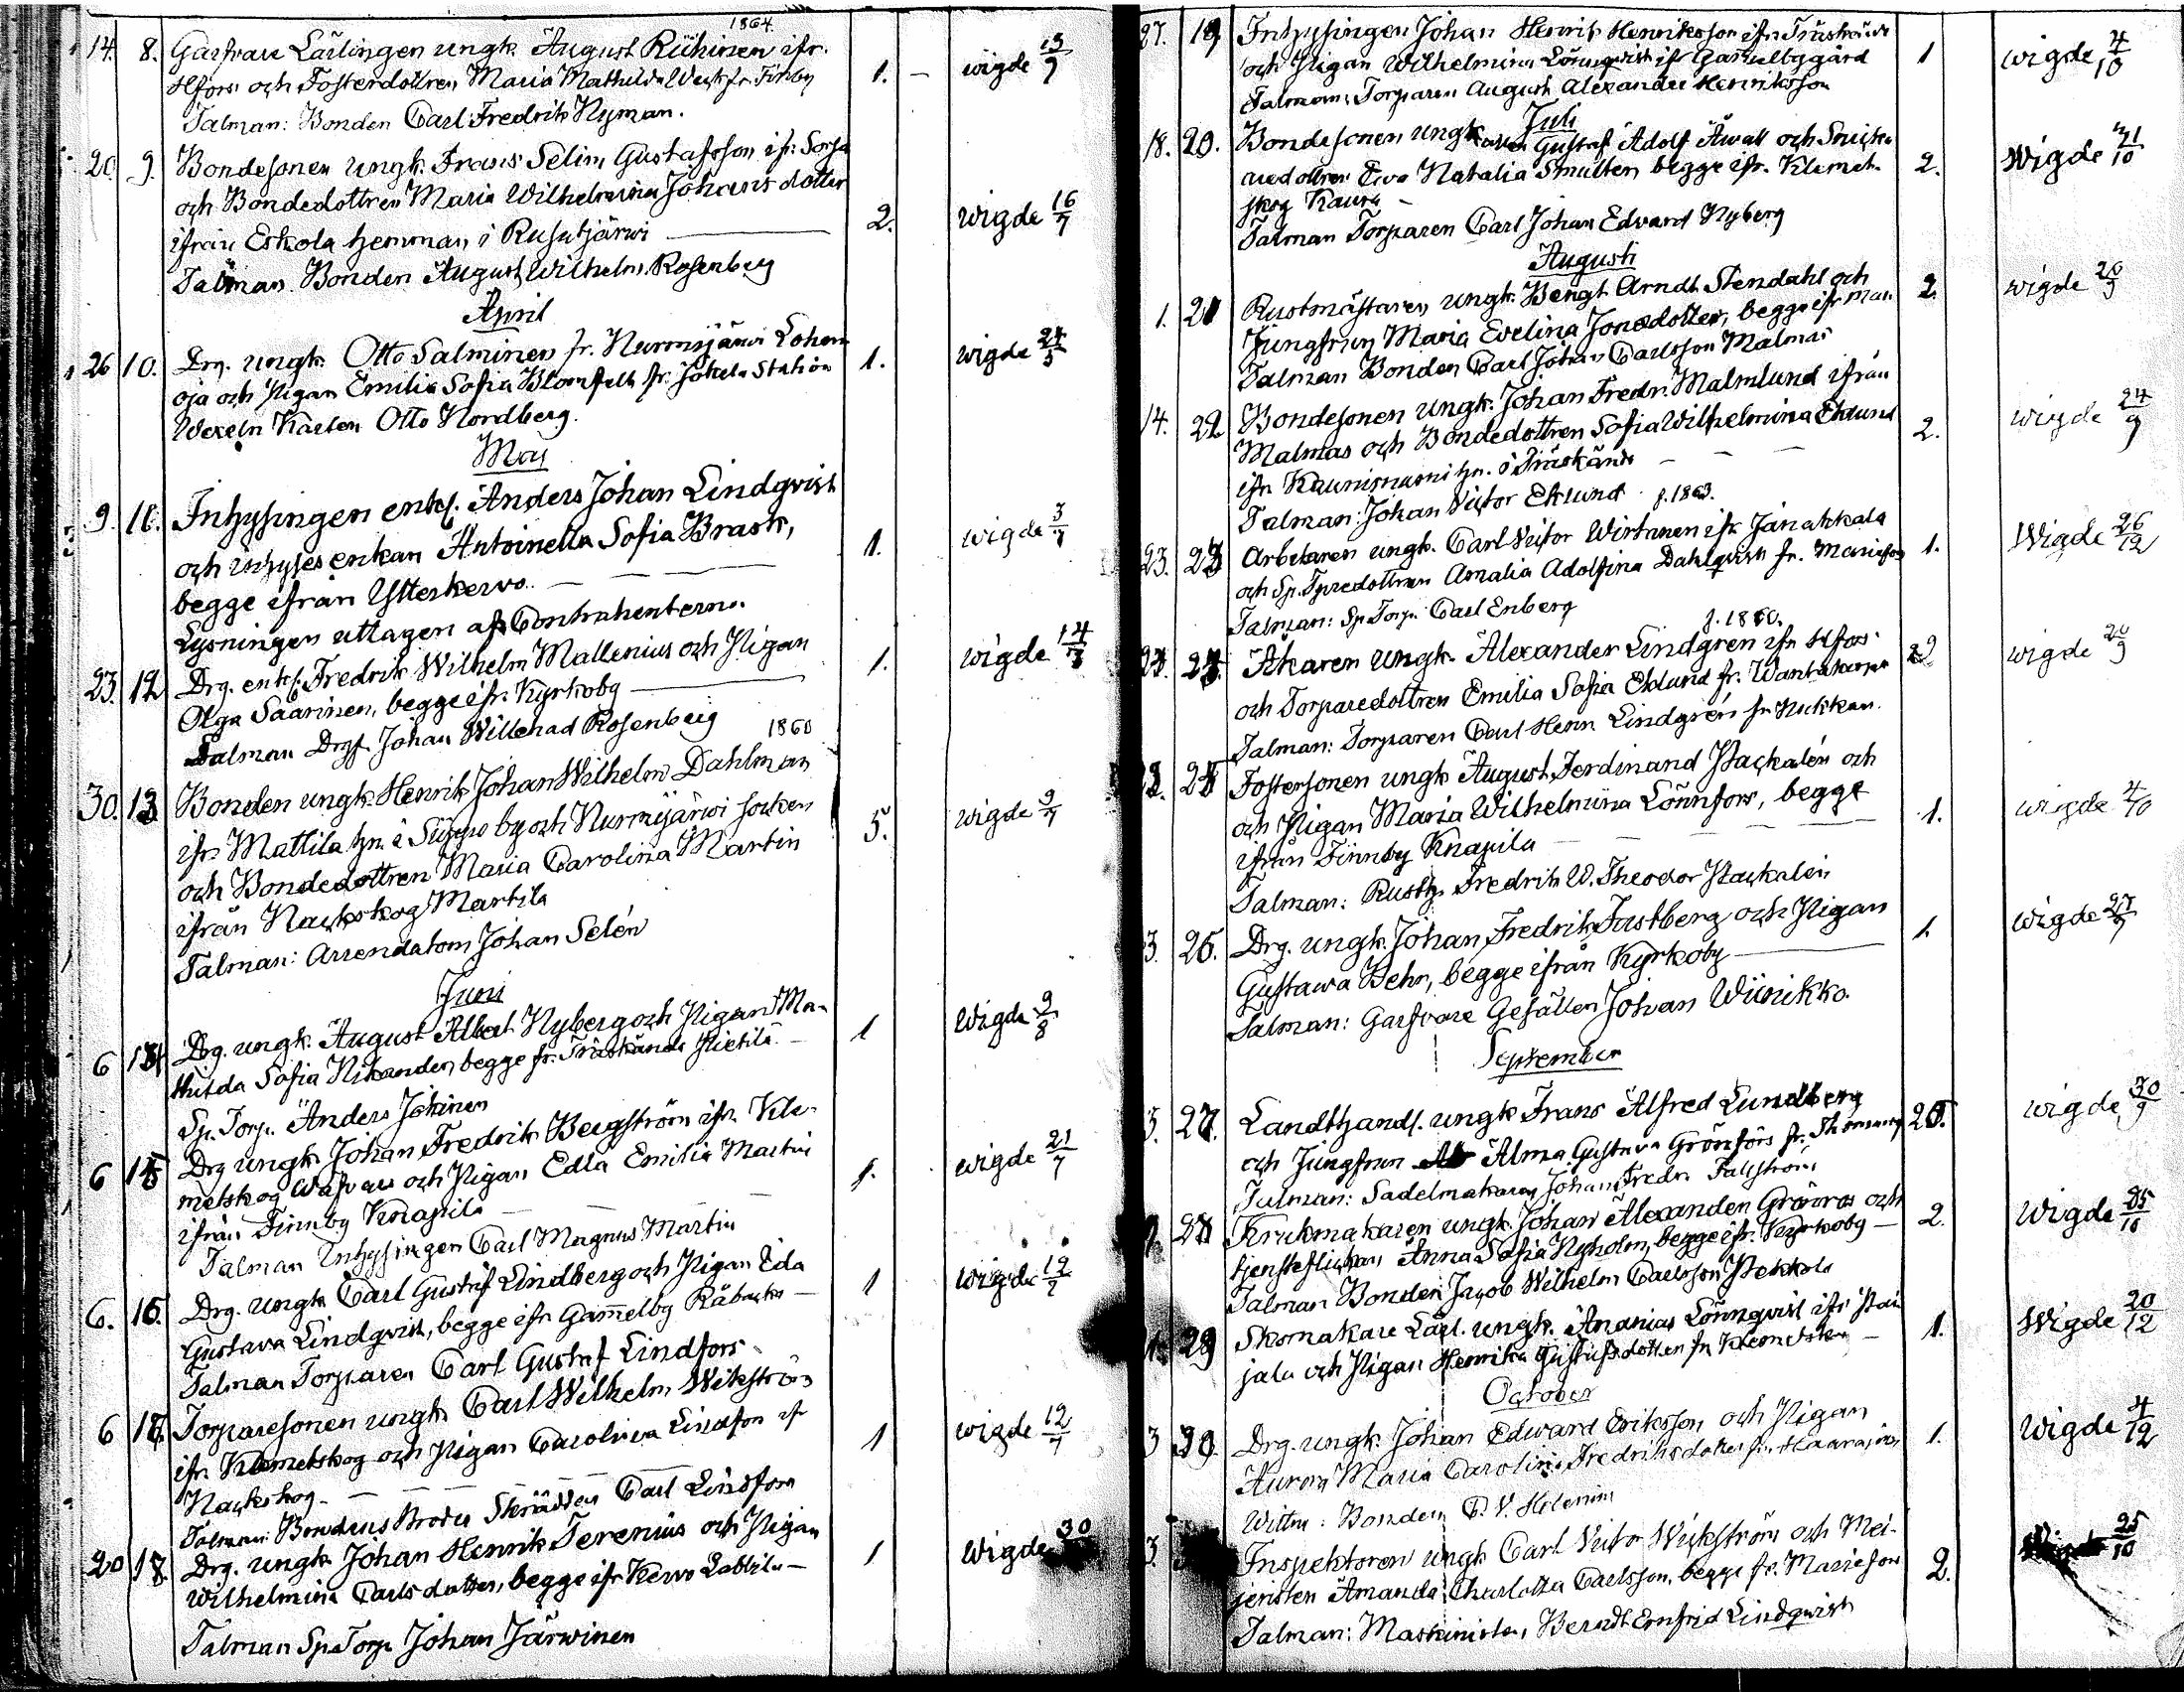 1864.
14. 8. Garfvare Lärlingen ungk. August Riihinen ifr.
Hfors och Fosterdottren Maria Mathilda fr. Finby 1. — wigde 13/9
Talman: Bonden Carl Fredrik Nyman.
20. 9. Bondesonen ungk. Frans Selim Gustafsson ifr.
och Bondedottren Maria Wilhelmina Johansdotter
ifrån Eskola hemman i Rusutjärwi 2. wigde 16/7
Talman Bonden August Wilhelm Rosenberg
April
26 10. Drg. ungk. Otto Salminen fr. Nurmijärwi
oja och Pigan Emilia Sofia Blomfelt fr. Jokela Station 1. wigde 24/5
Wexeln Karlen Otto Nordberg.
Maj
9. 11. Inhysingen enkl. Anders Johan Lindqvist
och inhyses enkan Antoinetta Sofia Brask, 1. wigde 3/7
begge ifrån Ytterkervo.
Lysningen uttagen af Contrahenterne.
23. 12 Drg. enkl. Fredrik Wilhelm Mallenius och Pigan 1. wigde 14/7
Olga Saarinen, begge ifr. Kyrkoby
Talman Drg. Johan Willehad Rosenberg
1860
30. 13 Bonden ungk. Henrik Johan Wilhelm Dahlman
ifr. Mattila hn. i by och Nurmijärwi socken 5. wigde 9/7
och Bondedottren Maria Carolina Martin
ifrån Nackskog Martila
Talman: Arrendatorn Johan Selén
Juni
6 14 Drg. ungk. August Albert Nyberg och Pigan Ma- 1 wigde 9/8
thilda Sofia Nikander, begge fr. Träskända Pietilä. —
Sp. Torp. Anders Jokinen
6 15 Drg ungk. Johan Fredrik Bergström ifr. Kle-
metskog och Pigan Edla Emilia Martin 1. wigde 21/7
ifrån Finnby Knapila
Talman Inhysingen Carl Magnus Martin
6. 16. Drg. ungk Carl Gustaf Lindberg och Pigan Eda 1 wigde 12/7
Gustava Lindqvist, begge ifr Gamelby Råbacka —
Talman Torparen Carl Gustaf Lindfors
6 17. Torparesonen ungk Carl Wilhelm Wikström
ifr. Klemetskog och Pigan Carolina Lindfors ifr 1 wigde 12/7
Nackskog.
Talman: Bondens Broder Skräddaren Carl Lindfors
20 18 Drg. ungk. Johan Henrik Terenius och Pigan 1 wigde 30
Wilhelmina Carlsdotter, begge ifr Kervo Labbila —
Talman Sp. Torp Johan Järwinen
27. 19 Inhysingen Johan Henrik Henriksson ifrn Träskända
och Pigan Wilhelmina Lönnqvist ifr Gamelbygård 1 wigde 4/10
Talman: Torparen August Alexander Henriksson
Juli
18. 20. Bondesonen ungk. Gustaf Adolf Äwall och Snicka-
redottren Eva Natalia Smulter, begge ifr. Klemet- 2. wigde 21/10
skog Kaura —
Talman Torparen Carl Johan Edvard Nyberg
Augusti
1. 21 Rustmästaren ungk. Bengt Arndt Stendahl och 2. wigde 20/9
Jungfrun Maria Evelina Jonasdotter, begge ifr
Talman Bonden Carl Johan Carlsson Malmas
14. 22 Bondesonen ungk. Johan Fredr. Malmlund ifrån
Malmas och Bondedottren Sofia Wilhelmina Eklund 2. wigde 24/9
ifr. Kaunisnumi hn. i Träskända — — —
Talman: Johan Victor Eklund f. 1863.
23. 23 Arbetaren ungk. Carl Victor Wirtanen ifr. Janakkala 1. wigde 26/12
och Sp. Torpredottren Amalia Adolfina Dahlqvist fr. Mariefors
Talman: Sp. Torp. Carl Enberg
f. 1860.
24. Åkaren ungk. Alexander Lindgren ifr Hfors 2 wigde 20/9
och Torparedottren Emilia Sofia Eklund fr.
Talman: Torparen Carl Henr. Lindgrén fr.
25 Fostersonen ungk August Ferdinand Stackalén och
och Pigan Maria Wilhelmina Lönnfors, begge 1. wigde 4/10
ifrån Finnby Knapila
Talman: Rusth. Fredrik W. Theodor Stackalén
26. Drg. ungk. Johan Fredrik Fastberg och Pigan 1. wigde 27/9
Gustawa Behr, begge ifrån Kyrkoby
Talman: Garfvare Gesällen Johan Wiinikka.
September
3. 27. Landthandl. ungk Frans Alfred Lundberg 20. wigde 30/9
och Jungfrun Alma Gustava Grönfors fr.
Talman: Sadelmakaren Johan Fredr. Fallström
28 Krukmakaren ungk. Johan Alexander Grönroos och 2. wigde 25/10
tjensteflickan Anna Sofia Nyholm, begge ifr. Kyrkoby —
Talman Bonden Jacob Wilhelm Carlsson Pekkola
29 Skomakare Lärl. ungk. Ananias Lönnqvist ifr 1. wigde 20/12
jala och Pigan Henrika Gustafsdotter fr Klemetskog —
October
3 30. Drg. ungk. Johan Edward Eriksson och Pigan 1. wigde 4/12
Aurora Maria Carolina Fredriksdotter fr. Haarajoki
Wittne: Bonden C. V. Helenius
3. Inspektoren ungk Carl Victor Wickström och Mei-
jeristen Amanda Charlotta Carlsson, begge fr. Mariefors 2. 25/10
Talman: Maskinisten, Berndt Ernfrid Lindqvist